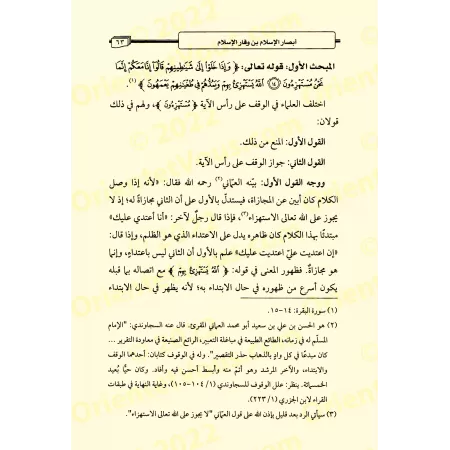 أبصار الإسلام بن وقار الإسلام
٦٣
المبحث الأول: قوله تعالى: ﴿ وَإِذَا خَلَوْا إِلَىٰ شَيَاطِينِهِمْ قَالُوا إِنَّا مَعَكُمْ إِنَّمَا
نَحْنُ مُسْتَهْزِءُونَ ﴿١٤﴾ اللَّهُ يَسْتَهْزِئُ بِهِمْ وَيَمُدُّهُمْ فِي طُغْيَانِهِمْ يَعْمَهُونَ ﴾ (١).
اختلف العلماء في الوقف على رأس الآية ﴿ مُسْتَهْزِءُونَ ﴾، ولهم في ذلك
قولان:
القول الأول: المنع من ذلك.
القول الثاني: جواز الوقف على رأس الآية.
ووجه القول الأول: بيّنه العمّاني(٢) رحمه الله فقال: «لأنه إذا وصل
الكلام كان أبين عن المجازاة، فيستدلّ بالأول على أن الثاني مجازاةٌ له؛ إذ لا
يجوز على الله تعالى الاستهزاء(٣)، فإذا قال رجلٌ لآخر: «أنا أعتدي عليك»
مبتدئًا بهذا الكلام كان ظاهره يدل على الاعتداء الذي هو الظلم، وإذا قال:
«إن اعتديت عليّ اعتديت عليك» علم بالأول أن الثاني ليس باعتداءٍ، وإنما
هو مجازاةٌ. فظهور المعنى في قوله: ﴿ اللَّهُ يَسْتَهْزِئُ بِهِمْ ﴾ مع اتصاله بما قبله
يكون أسرع من ظهوره في حال الابتداء به؛ لأنه يظهر في حال الابتداء
(١) سورة البقرة: ١٤-١٥.
(٢) هو الحسن بن علي بن سعيد أبو محمد العماني المقرئ. قال عنه السجاوندي: "الإمام
المسلّم له في زمانه، الطائع الطبيعة في مباخلة التعبير، الرائع الصنيعة في معاودة التقرير ...
كان مبدعًا في كل وادٍ بالذهاب حذر التقصير". وله في الوقوف كتابان: أحدهما الوقف
والابتداء، والآخر المرشد وهو أتمّ منه وأبسط أحسن فيه وأفاد. وكان حيًّا بُعيد
الخمسمائة. ينظر: علل الوقوف للسجاوندي (١/ ١٠٤-١٠٥)، وغاية النهاية في طبقات
القراء لابن الجزري (١/ ٢٢٣).
(٣) سيأتي الرد بعد قليل بإذن الله على قول العمّاني "لا يجوز على الله تعالى الاستهزاء".